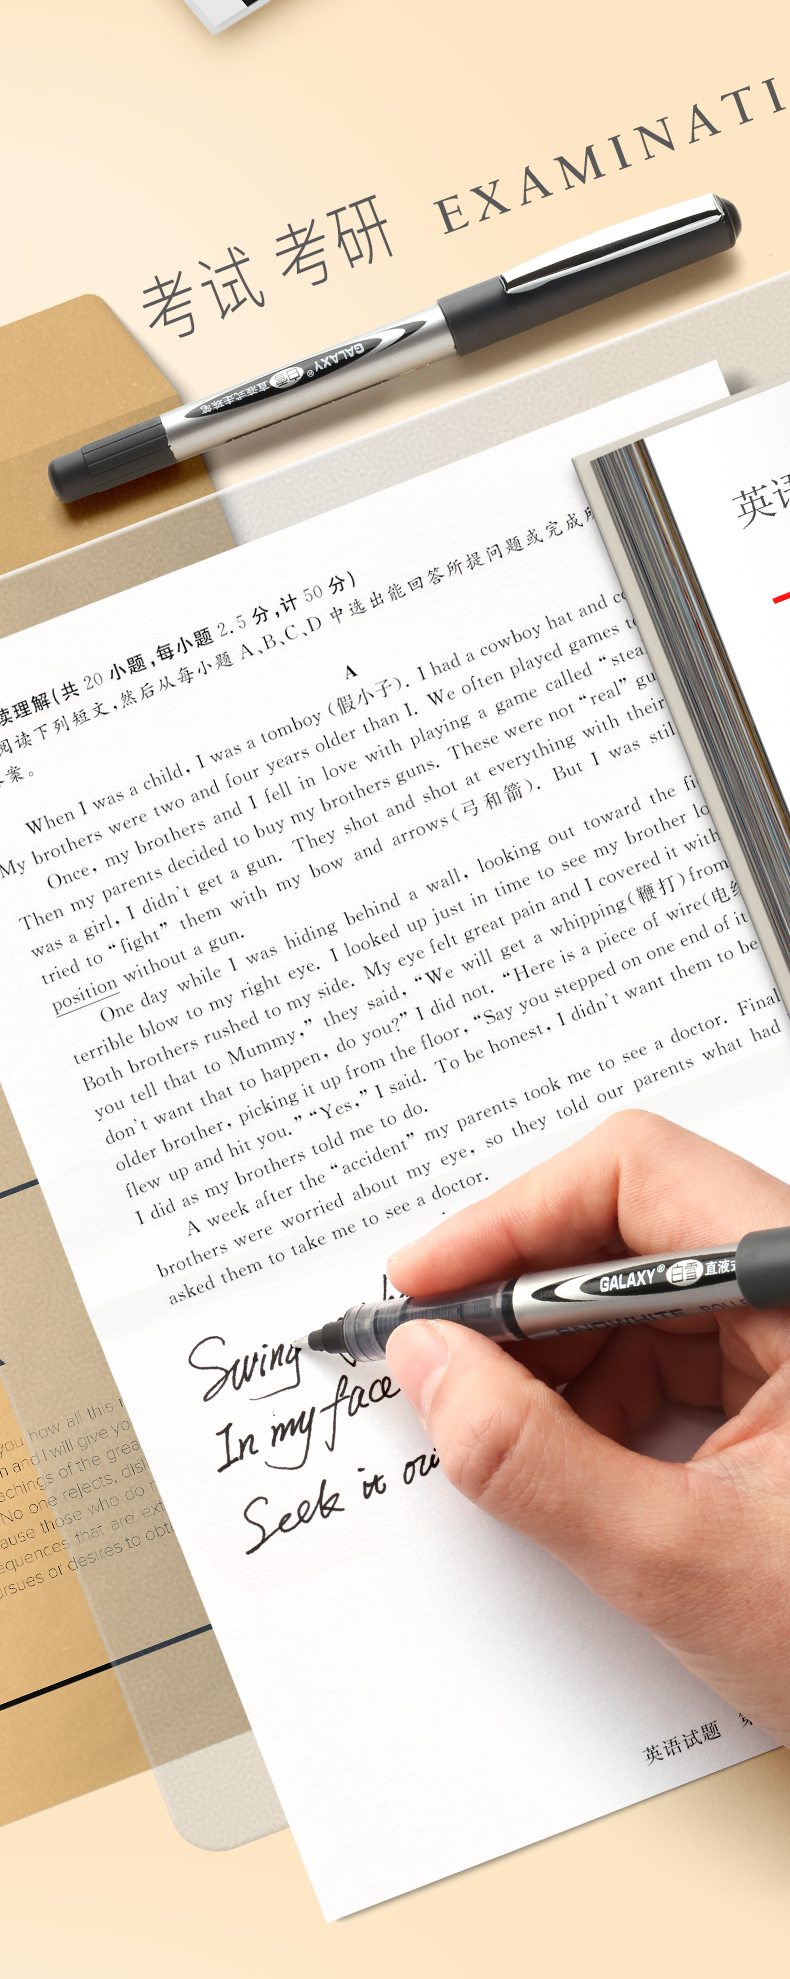 考试 考研 EXAMINATI
GALAXY® 白雪 直液式走珠笔
英语
读理解(共 20 小题,每小题 2.5 分,计 50 分)
阅读下列短文,然后从每小题 A、B、C、D 中选出能回答所提问题或完成所
答案。
A
When I was a child, I was a tomboy (假小子). I had a cowboy hat and co
My brothers were two and four years older than I. We often played games to
Once, my brothers and I fell in love with playing a game called “stea
Then my parents decided to buy my brothers guns. These were not “real” gu
was a girl, I didn't get a gun. They shot and shot at everything with their
tried to “fight” them with my bow and arrows(弓和箭). But I was still
position without a gun.
One day while I was hiding behind a wall, looking out toward the fi
terrible blow to my right eye. I looked up just in time to see my brother lo
Both brothers rushed to my side. My eye felt great pain and I covered it with
you tell that to Mummy,” they said, “We will get a whipping(鞭打)from
don't want that to happen, do you?” I did not. “Here is a piece of wire(电线
older brother, picking it up from the floor, “Say you stepped on one end of it
flew up and hit you.” “Yes,” I said. To be honest, I didn't want them to be
I did as my brothers told me to do.
A week after the “accident” my parents took me to see a doctor. Final
brothers were worried about my eye, so they told our parents what had
asked them to take me to see a doctor.
GALAXY® 白雪 直液式
SNOWHITE
Swing
In my face
Seek it ou
you how all this
n and I will give yo
achings of the grea
No one rejects, disl
ause those who do n
equences that are ext
ursues or desires to obta
英语试题